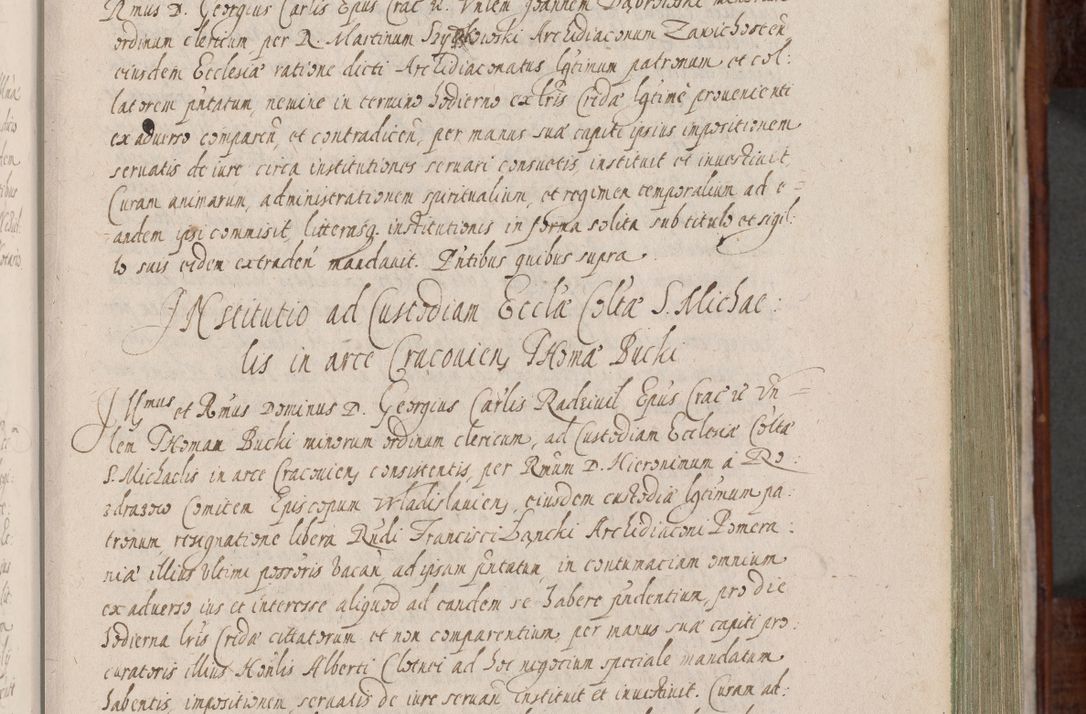 Rmus D. Georgius Carlis Epus Crac &c. Vnlem Joannem Dąbrowski minorum
ordinum clericum per R. Martinum Szyszkowski Archidiaconum Zawichosten
eiusdem Ecclesiæ ratione dicti Archidiaconatus lgtimum patronum et col:
latorem pntatum, nemine in termino hodierno ex lris Credæ lgtime prouenienti
ex aduerso comparen, et contradicen, per manus suæ capiti ipsius impositionem
seruatis de iure circa institutiones seruari consuetis, instituit et inuestiuit,
Curam animarum, administrationem spiritualium, et regimen temporalium ad e=
andem ipsi commisit, litterasq. institutionis in forma solita sub titulo et sigil:
lo suis eidem extraden mandauit. Pntibus quibus supra.
INstitutio ad Custodiam Ecclæ Coltæ S. Michae:
lis in arce Cracouien, THomæ Bucki
Illmus et Rmus Dominus D. Georgius Carlis Radziuil Epus Crac &c Vn=
lem THomam Bucki minorum ordinum clericum, ad Custodiam Ecclesiæ Coltæ
S. Michaelis in arce Cracouien, consistentis, per Rmum D. Hieronimum a Ro:
zdrazow Comitem Episcopum Vladislauien, eiusdem custodiæ lgtimum pa:
tronum, resignatione libera Rndi Francisci Łąncki Archidiaconi Pomera:
niæ illius vltimi possoris vacan ad ipsam pntatum, in contumaciam omnium
ex aduerso ius et interesse aliquod ad eandem se habere pndentium, pro die
hodierna lris Credæ citatorum et non comparentium, per manus suæ capiti pro:
curatoris illius Honlis Alberti Clotnei ad hoc negocium speciale mandatum
habentis, impositionem, seruatis de iure seruan instituit et inuestiuit. Curam ad: